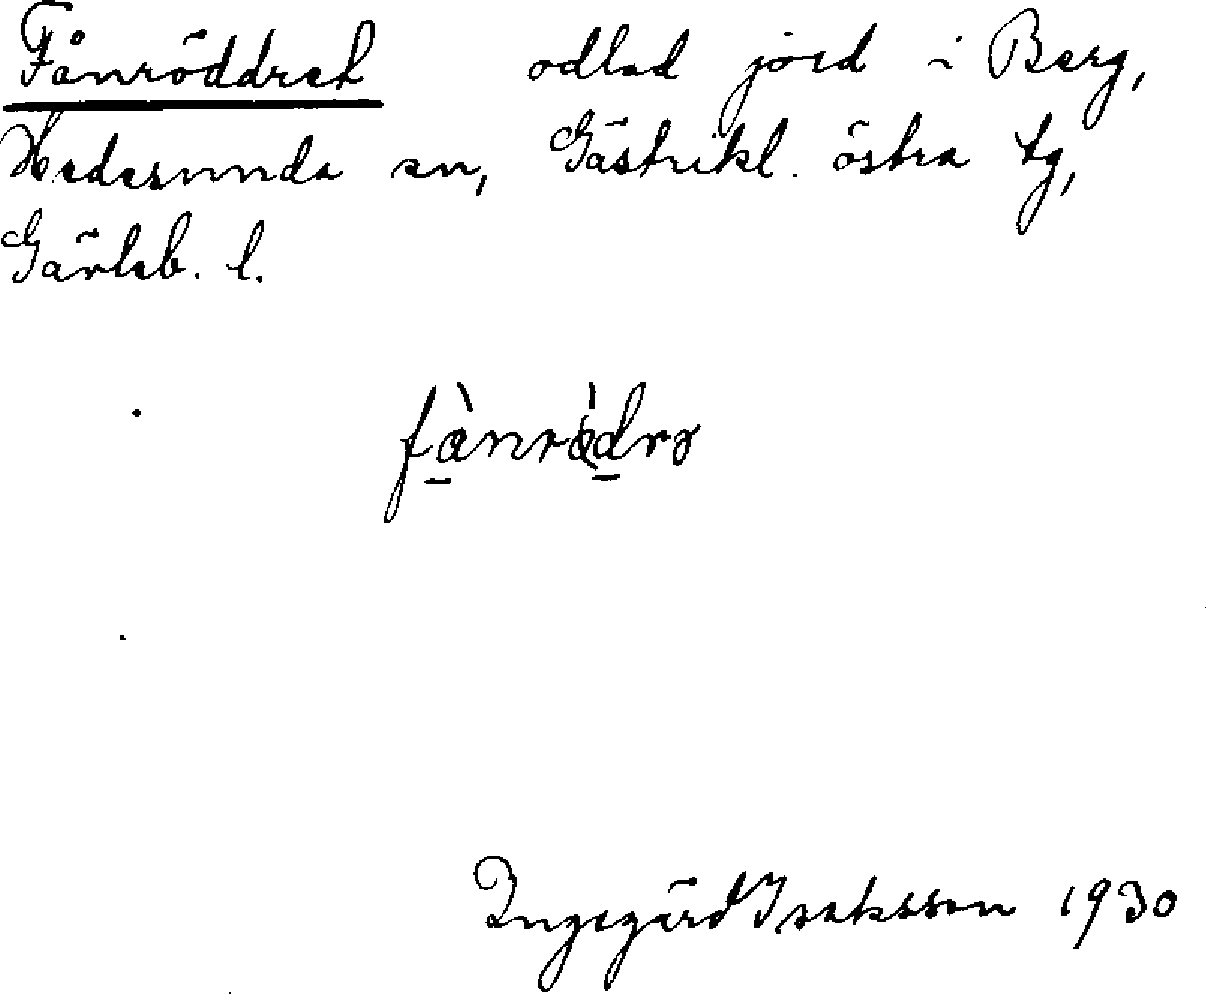 Fånröddret odlad jord i Berg,
Hedesunda sn, Gästrikl. östra tg,
Gävleb. l.
fànrødrə
Ingegärd Isaksson 1930